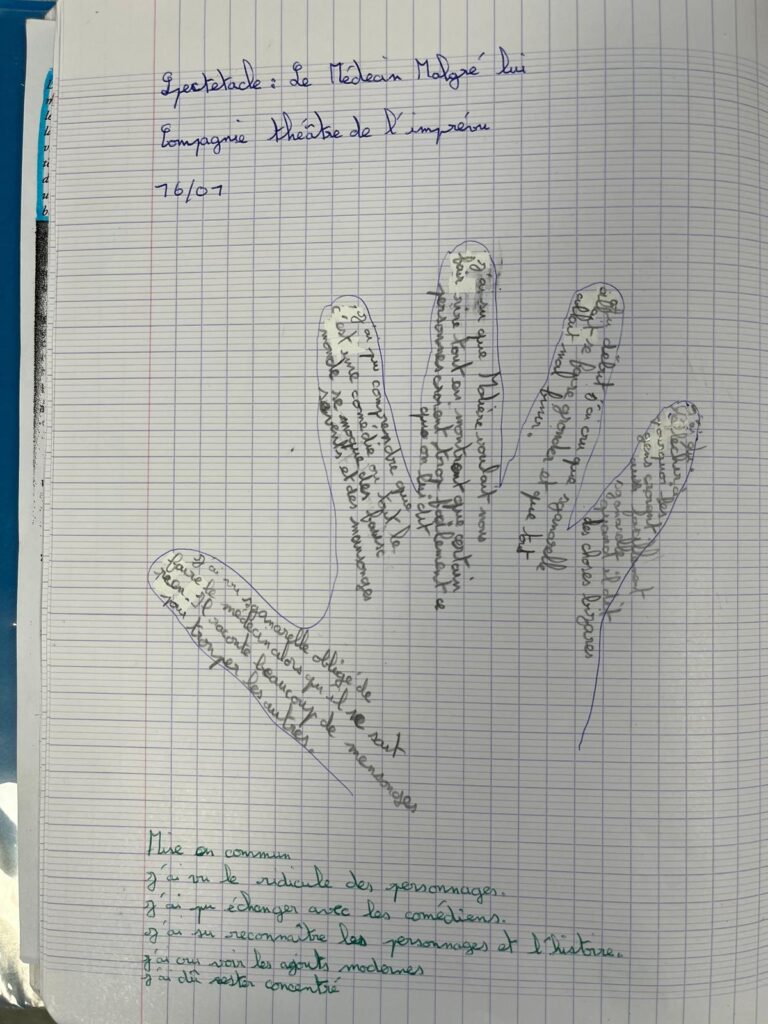 Spectetacle : Le Médecin Malgré lui
Compagnie théâtre de l'imprévu
16/01
J'ai vu sganarelle obligé de
faire le médecin alors qu'il ne sait
rien. Il raconte beaucoup de mensonges
pour tromper les autres.
J'ai pu comprendre que
c'est une comédie ou tout le
monde se moque des faux
savants et des mensonges
J'ai cru que Molière voulait nous
fair rire tout en montrant que certain
personnes croient trop facilement ce
que on lui dit
au début j'ai cru que sganarelle
allait se faire gronder et que tout
allait mal finir.
J'ai du
réfléchir à
pourquoi les
gens croient
sganarelle
quand il dit
des choses bizares
Mise en commun
J'ai vu le ridicule des personnages.
J'ai pu échanger avec les comédiens.
J'ai su reconnaître les personnages et l'histoire.
J'ai cru voir les ajouts modernes
J'ai dû rester concentré